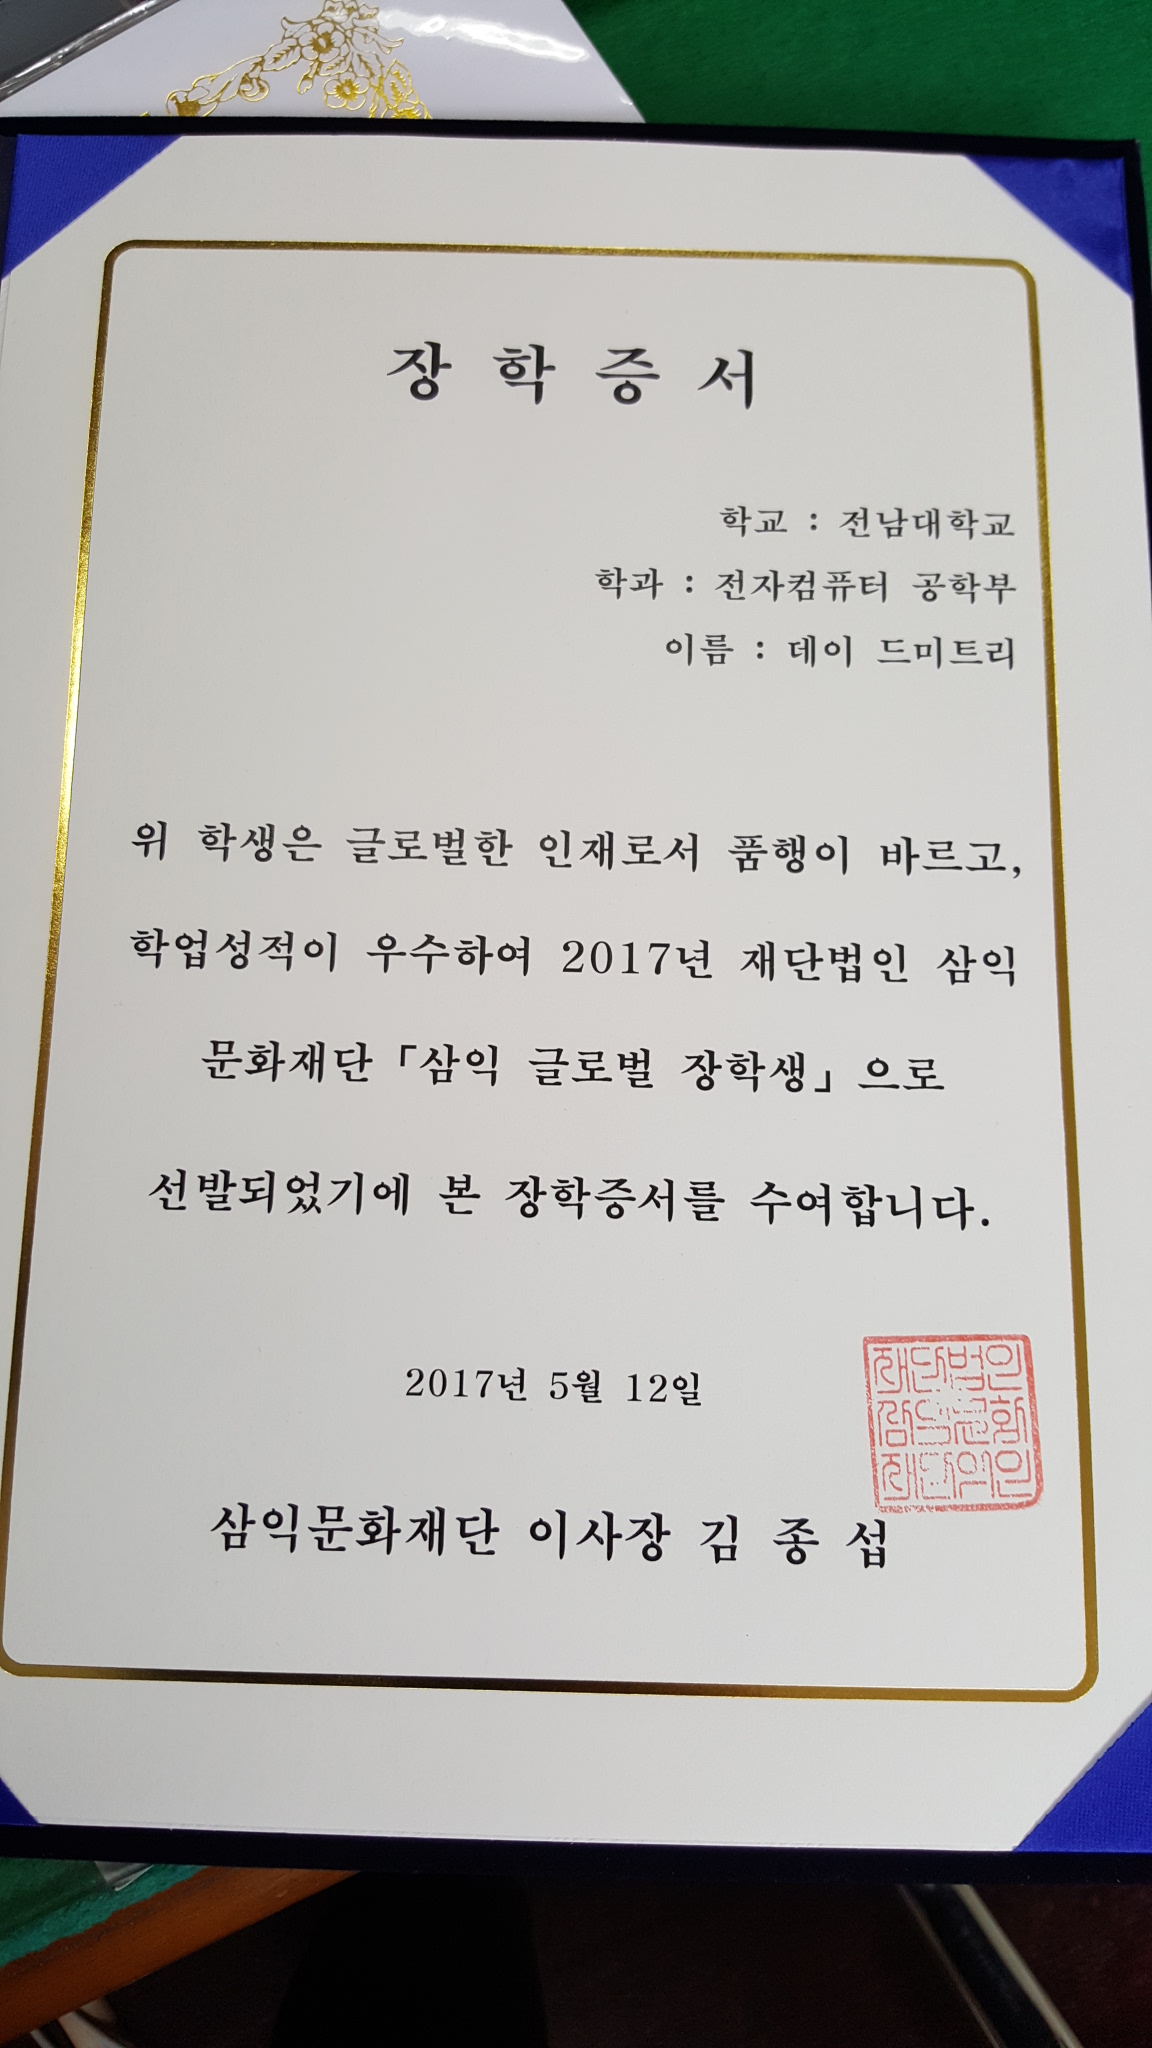 장 학 증 서
학교 : 전남대학교
학과 : 전자컴퓨터 공학부
이름 : 데이 드미트리
위 학생은 글로벌한 인재로서 품행이 바르고,
학업성적이 우수하여 2017년 재단법인 삼익
문화재단「삼익 글로벌 장학생」으로
선발되었기에 본 장학증서를 수여합니다.
2017년 5월 12일
재단법인
삼익문화
재단의인
삼익문화재단 이사장 김 종 섭